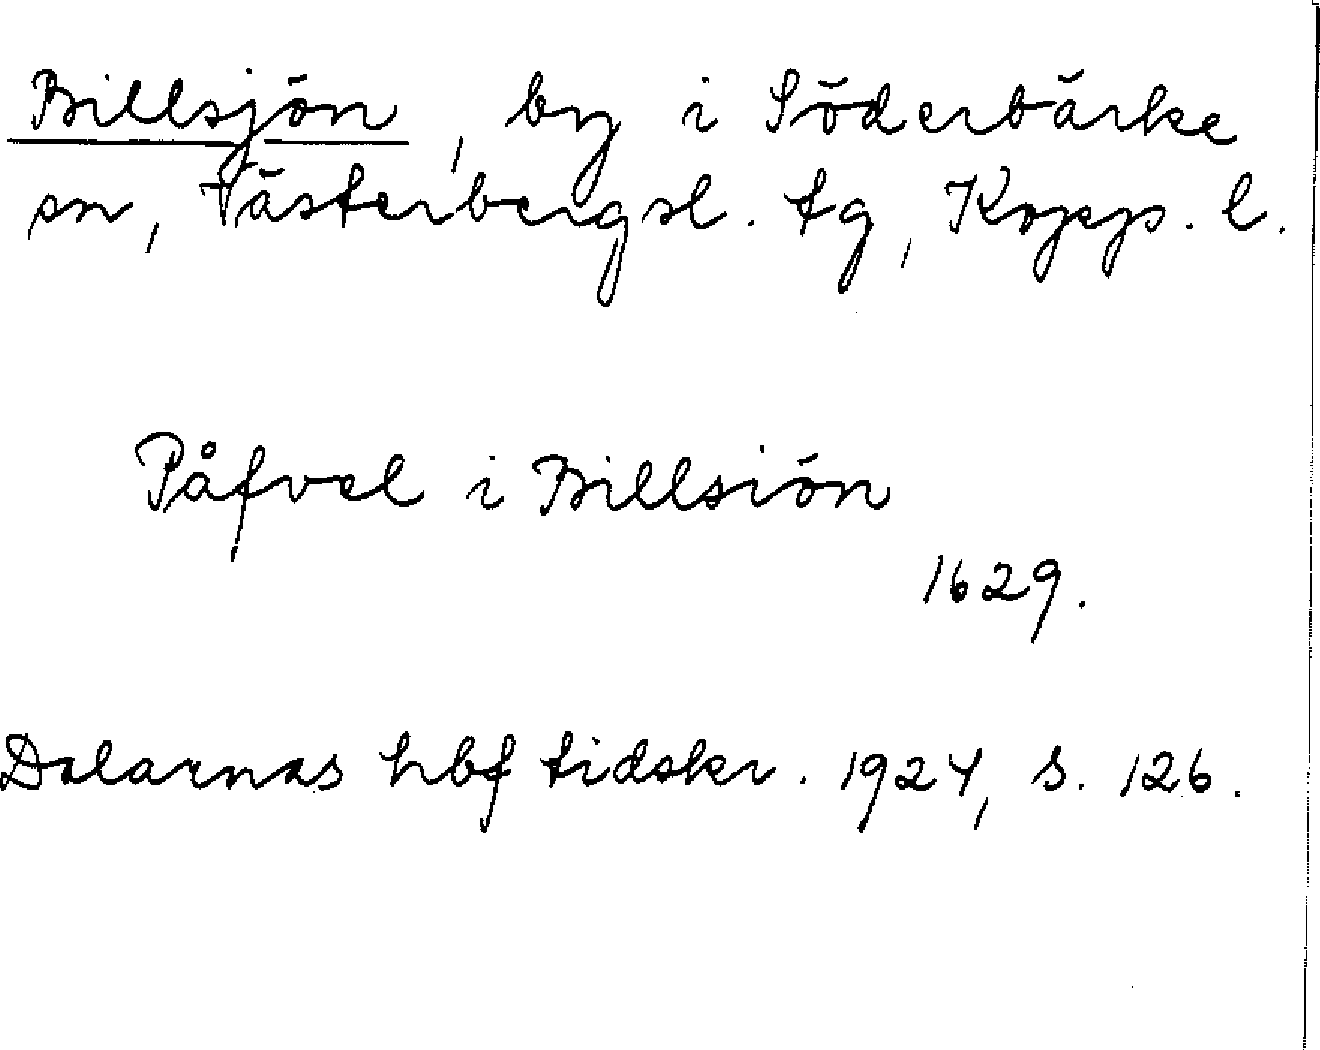 Billsjön, by i Söderbärke
sn, Västerbergsl. tg, Kopp. l.
Påfvel i Billsiön
1629.
Dalarnas hbf tidskr. 1924, s. 126.